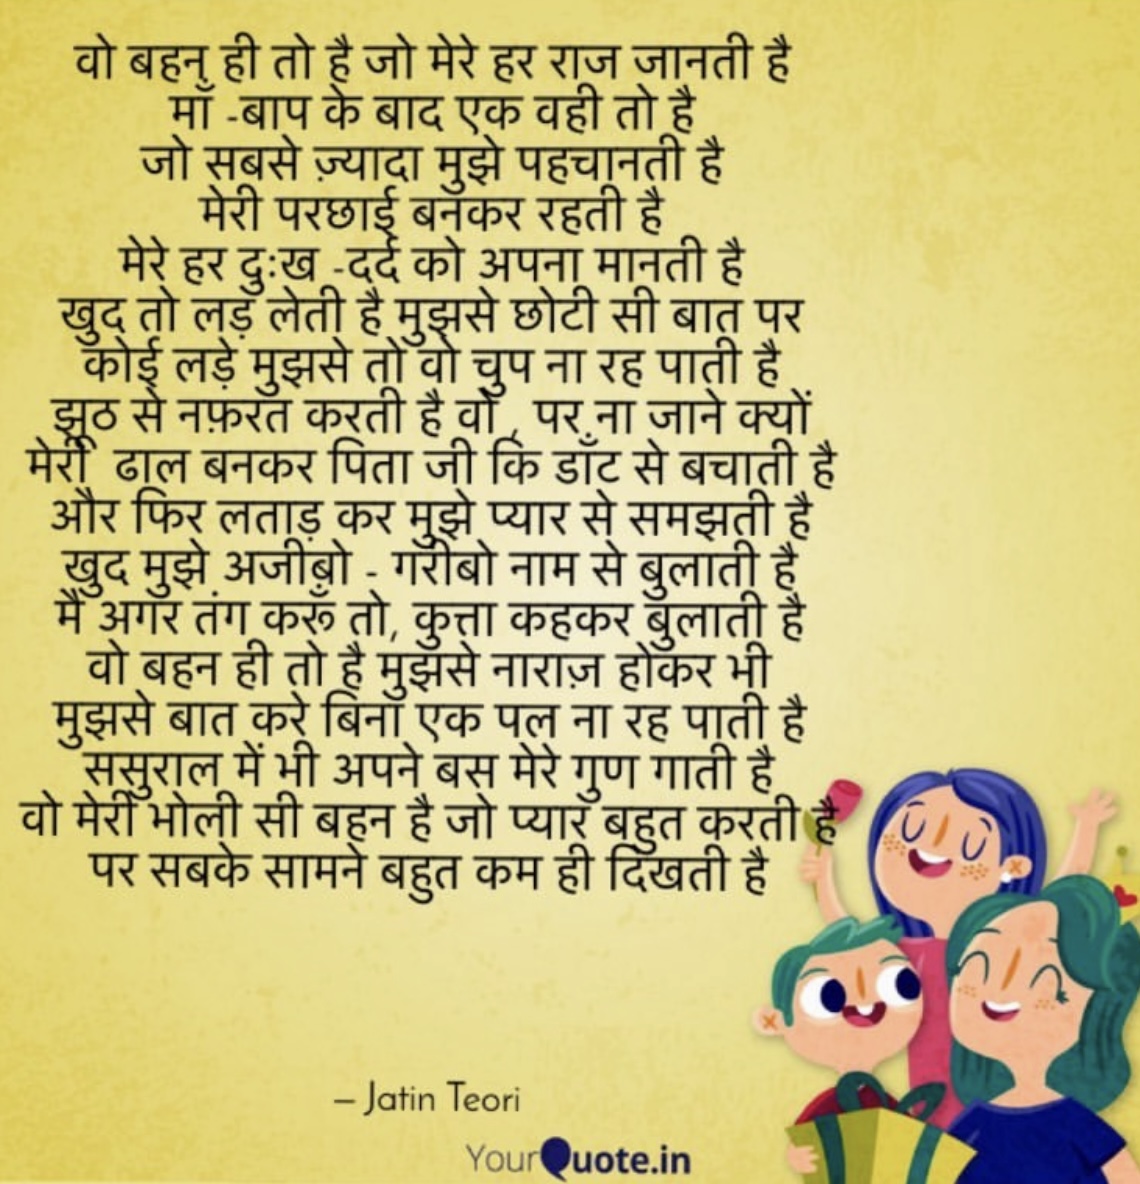 वो बहन ही तो है जो मेरे हर राज जानती है
माँ -बाप के बाद एक वही तो है
जो सबसे ज़्यादा मुझे पहचानती है
मेरी परछाई बनकर रहती है
मेरे हर दुःख -दर्द को अपना मानती है
खुद तो लड़ लेती है मुझसे छोटी सी बात पर
कोई लड़े मुझसे तो वो चुप ना रह पाती है
झूठ से नफ़रत करती है वो , पर ना जाने क्यों
मेरी ढाल बनकर पिता जी कि डाँट से बचाती है
और फिर लताड़ कर मुझे प्यार से समझती है
खुद मुझे अजीबो - गरीबो नाम से बुलाती है
मैं अगर तंग करूँ तो, कुत्ता कहकर बुलाती है
वो बहन ही तो है मुझसे नाराज़ होकर भी
मुझसे बात करे बिना एक पल ना रह पाती है
ससुराल में भी अपने बस मेरे गुण गाती है
वो मेरी भोली सी बहन है जो प्यार बहुत करती है
पर सबके सामने बहुत कम ही दिखती है
– Jatin Teori
YourQuote.in